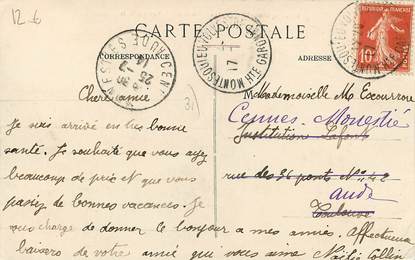 12_6
CARTE POSTALE
CORRESPONDANCE
ADRESSE
31
Chère amie
Je suis arrivé en très bonne
santé. Je souhaite que vous ayez
beaucoup de prix et que vous
passiez de bonnes vacances. Je
vous charge de donner le bonjour à mes amies. Affectueux
baisers de votre amie qui vous aime
Mademoiselle M Escourrou
Cennes-Monestié
Institution Lafont
rue des 36 ponts No
Aude
Toulouse
10